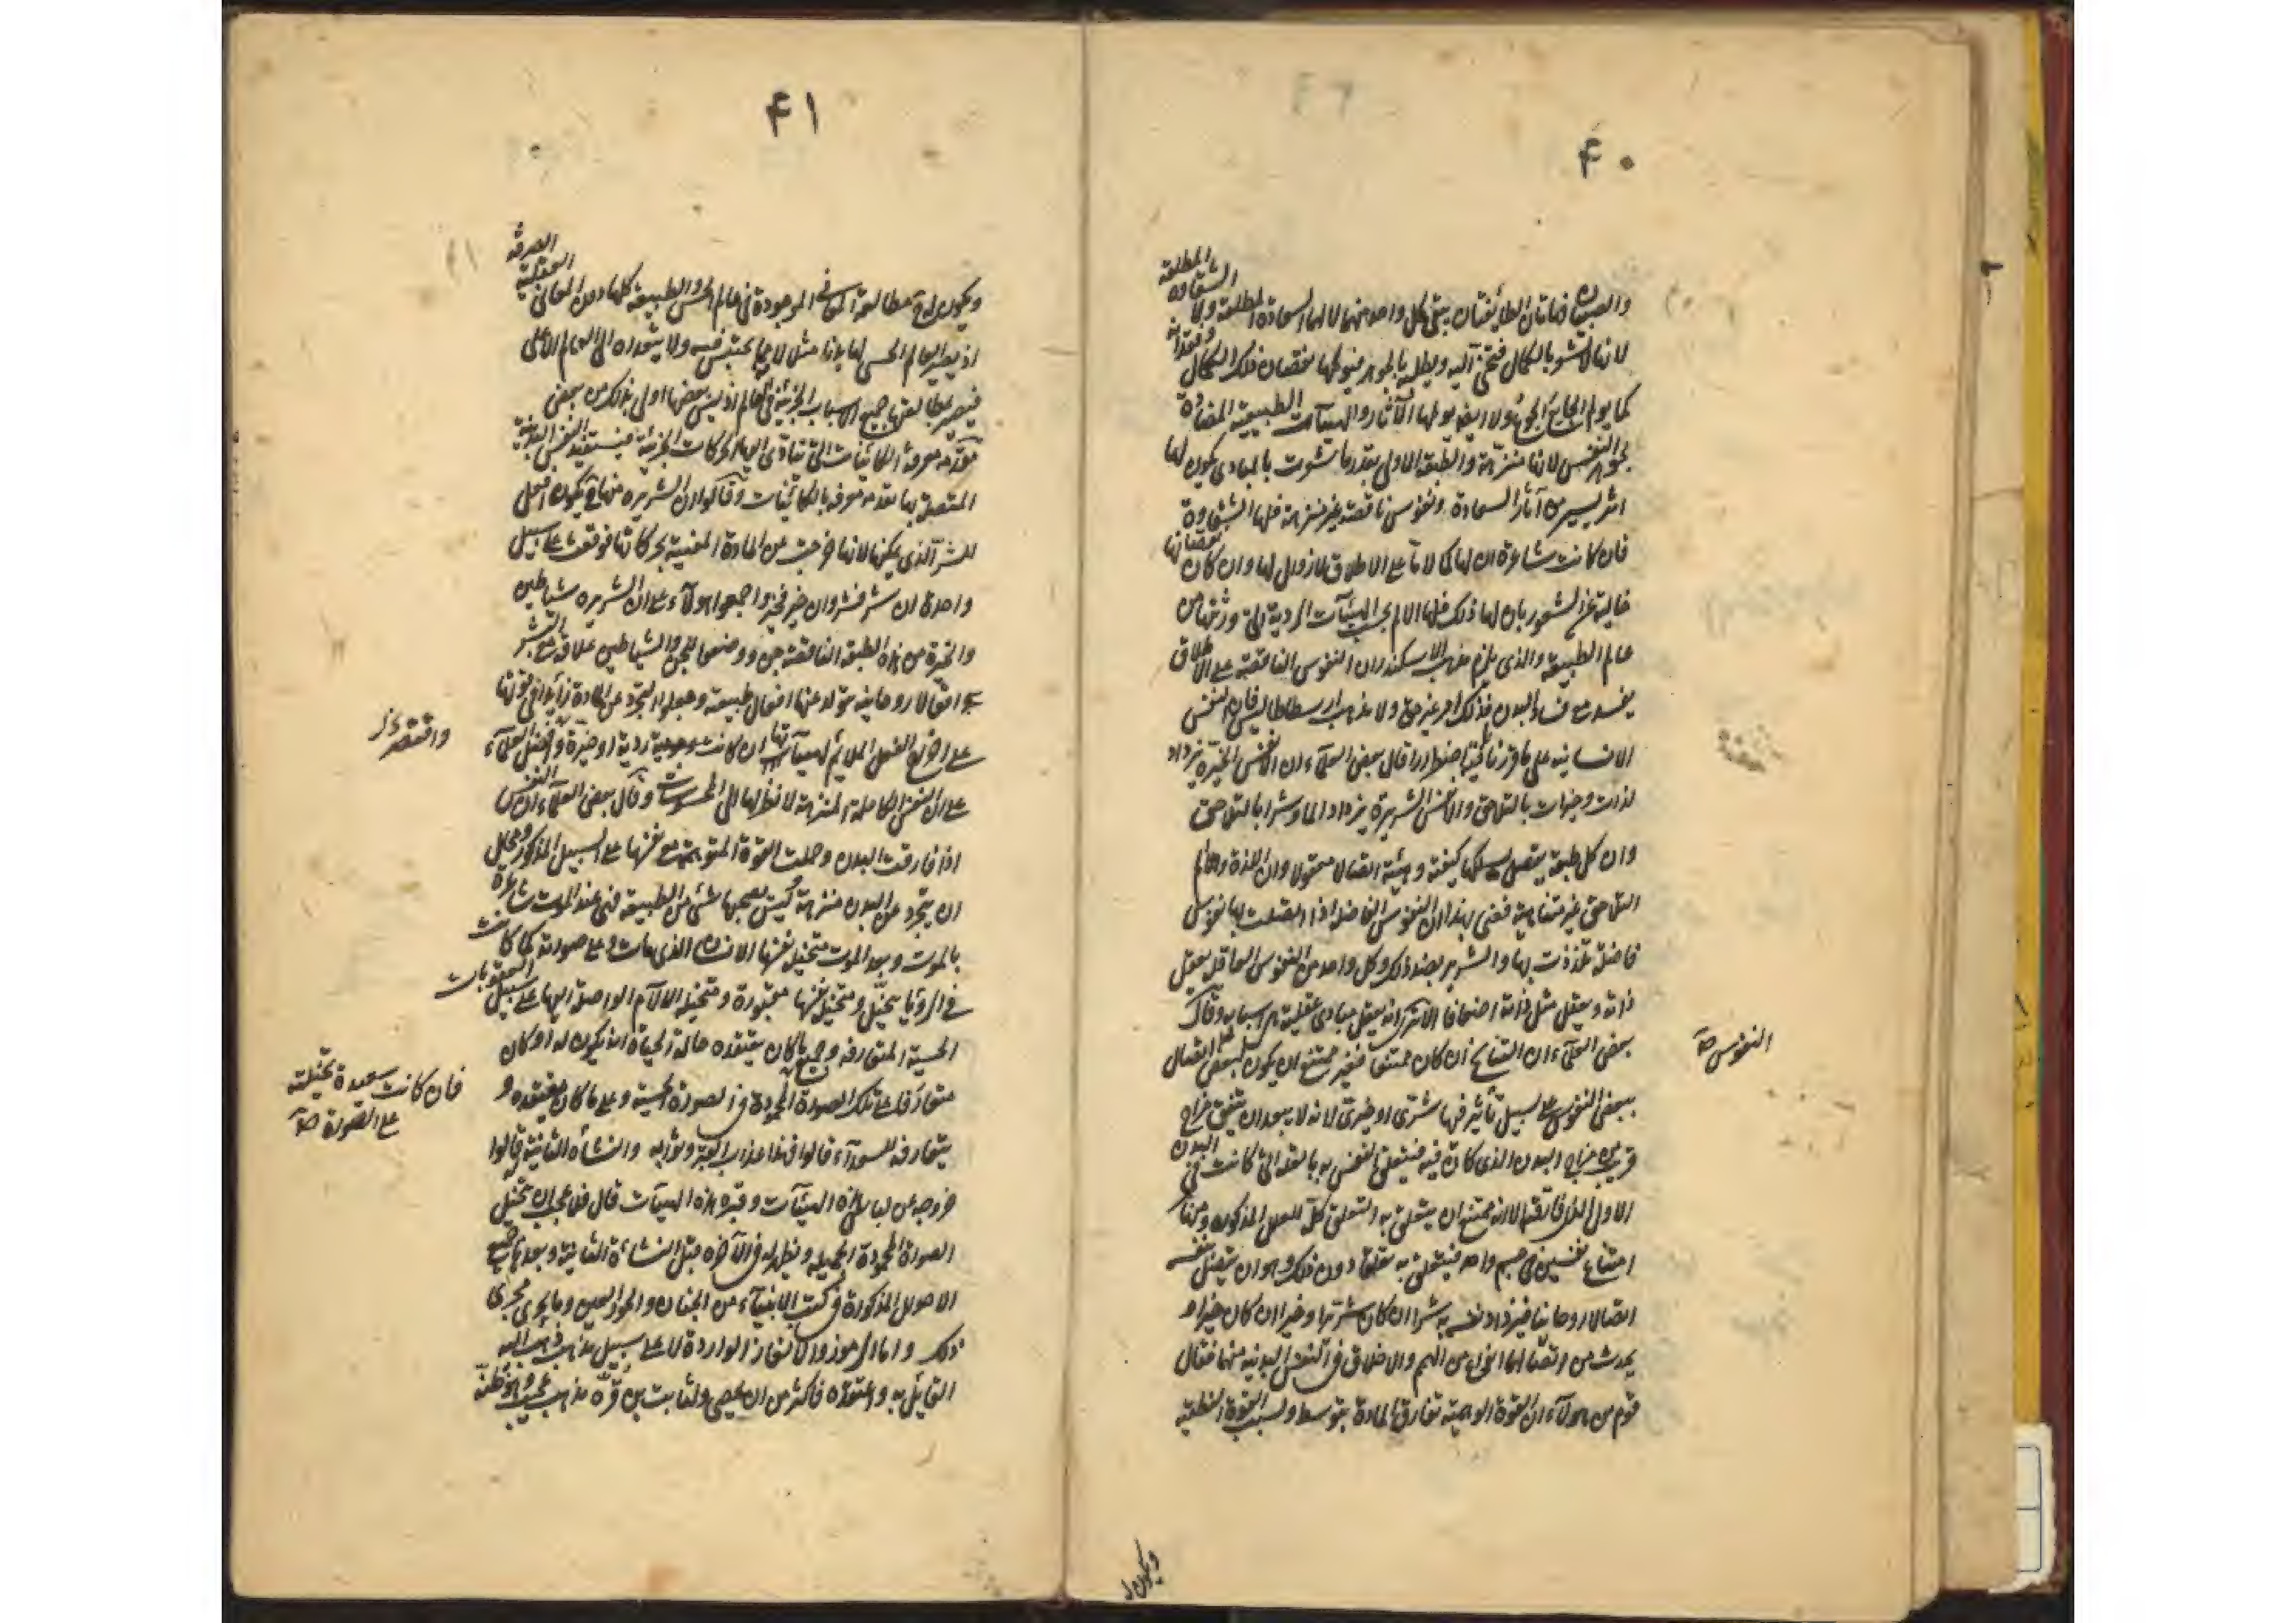 ۴۰
والصبيان فهاتان الطايفتان يبقى كل واحد منهما لا لها السعادة المطلقة ولا الشقاوة المطلقة
لانها لا تشعر بالكمال فتحن اليه ويطلبه بالجوهر فيولمها نقصان ذلك الكمال وفقدانه
كما يولم الجايع الجوع ولا ايضا يولمها الآثار والهيآت الطبيعية المضادة
لجوهر النفس لانها منزهة والطبقة الاولى بقدر ما شعرت بالمبادى يكون لها
اثر يسير من آثار السعادة ونفوس ناقصة غير منزهة فلها الشقاوة
فان كانت شاعرة ان لها كمالا ما على الاطلاق لا زوال لها وان كان نقصانها
خالية عن الشعور بان لها ذلك فلها الالم بحسب الهيئآت الردية التى ورثتها من
عالم الطبيعة والذى يلزم مذهب الاسكندر ان النفوس الناقصة على الاطلاق
يفسد مع فساد البدن فذلك امر غير حق ولا مذهب ارسطاطاليس فان النفس
الانسانيه على ما قررنا باقية اضطرارا قال بعض العلماء ان الانفس الخيرة يزداد
لذات وخيرات بالتلاحق والانفس الشريرة يزداد الما وشرا بالتلاحق
وان كل طبقة يتصل كيفية وهيئة اتصالا معقولا وان اللذة والالم
التلاحق غير متناهية فعنى بهذا ان النفوس الفاضلة اذا اتصلت بها نفوس
فاضلة تلذذت بها والشرير بضد ذلك وكل واحد من النفوس العاقلة يعقل
ذاته ويعقل مثل ذاته اضعافا لانه يعقل مبادى عقلية هى اسبابه وقال
بعض العلماء ان التناسخ ان كان ممتنعا فغير ممتنع ان يكون لبعض اتصال
ببعض النفوس على سبيل تأثير فيها شرى او خيرى لانه لا يبعد ان يتفق مزاج
قريب من مزاج البدن الذى كان فيه فيتعلق النفس به بالعلة التى كانت فى البدن
الاول الذى فارقته الا انه ممتنع ان يتعلق به التعلق كله للعلل المذكورة ومنها
امتناع نفسين فى جسم واحد فيتعلق به تعلقا دون ذلك وهو ان يتصل بنفسه
اتصالا روحانيا فيزداد نفسه به شرا ان كان شريرا وخيرا ان كان خيرا و
يحدث من اتصالها انواع من الهم والاخلاق فى النفس البدنية منها فقال
قوم من هولآء ان القوة الوهمية تفارق المادة بتوسط وبسبب القوة النطقية
النفوس صح
ويكون
۴۱
ويكون له مطالعة المعانى الموجودة فى عالم الحس والطبيعة كلها دون المعانى العقلية الصرفة
اذ يصير العالم الحسى لها بازاء مثل لا يحتبس فيه ولا يتعداه الى العالم الاعلى
فيصير مطالعتها جميع الاسباب الجزئية فى العالم اذ ليس بعضها اولى بذلك من بعض
تقدمه معرفة الكائنات التى تتادى اليها الحركات الجزئية فيستفيد النفس البدنية
المتصلة بها تقدمة معرفة بالكائنات وقالوا ان الشريرة منها يكون افعل
للشر الذى يمكنها لانها خرجت عن المادة المغنية بحركاتها فوقفت على سبيل
واحدة ان شر فشر وان خير فخير واجمعوا هولآء على ان الشريرة شياطين
والخيرة من هذه الطبقة الناقصة جن ووضعوا للجن والشياطين علاقة مع البشر
اتصالا روحانية يتولد عنها افعال طبيعية وجعلوا التجرد عن المادة زايدا فى قوتها
على انواع الفعل الملائم لهيآتها ان كانت ردية او خيرة واتفق العلماء
على ان النفس الكاملة المنزهة لا نظر لها الى المحسوسات وقال بعض العلماء ان النفس
اذا فارقت البدن وحملت القوة المتوهمة مع نفسها على السبيل المذكور ومحال
ان يتجرد عن البدن منزهة وليس يصحبها شىء من الطبيعة فهى عند الموت شاعرة
بالموت وبعد الموت متخيل نفسها الانسان الذى مات وعلى صورته كما كانت
فى الرؤيا يتخيل ومتخيل نفسها مقبورة ومتخيلة الآلام الواصلة اليها على سبيل العقوبات
الحسية المتعارفة وجميع ما كان يعتقده حالة الحياة انه يكون له لو كان
متعارفا على تلك الصورة المحمودة فى الصورة الحسية وعلى ما كان يعتقده و
يتعارفه للسعداء قالوا فهذا عذاب القبر وثوابه والنشأة الثانية قالوا
خروجه عن لباس هذه الهيئآت وقبره هذه الهيآت قال فلا عجب ان يتخيل
الصورة المحمودة الجميلة ويظهر له فى الآخرة مثل النشاة الثانية وبعدها جميع
الاحوال المذكورة فى كتب الانبيآء من الجنان والحور العين وما يجرى مجرى
ذلك واما الرموز والالغاز الواردة لا على سبيل مذهب ذهب اليه
القايل به واعتقده فاكثر من ان يحصى
واقتصر
فان كانت سعيدة تخيلته
على الصورة صح